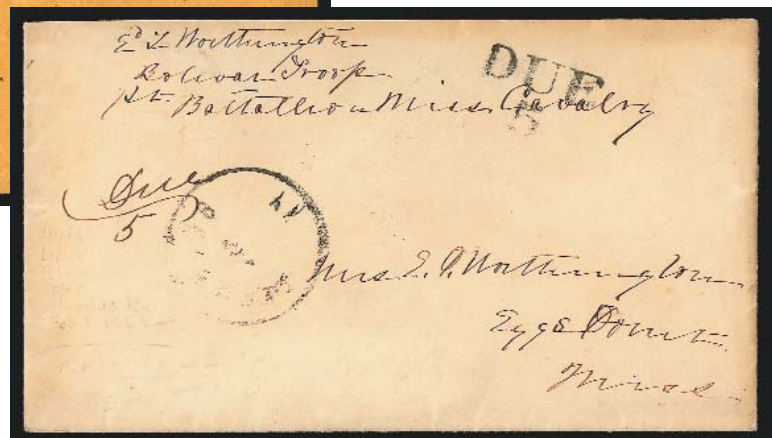 Ed T. Worthington
Bolivar Troop
1st Battallion Miss Cavalry
DUE
5
Due
5
Mrs E. P. Worthington
Eggs Point
Miss